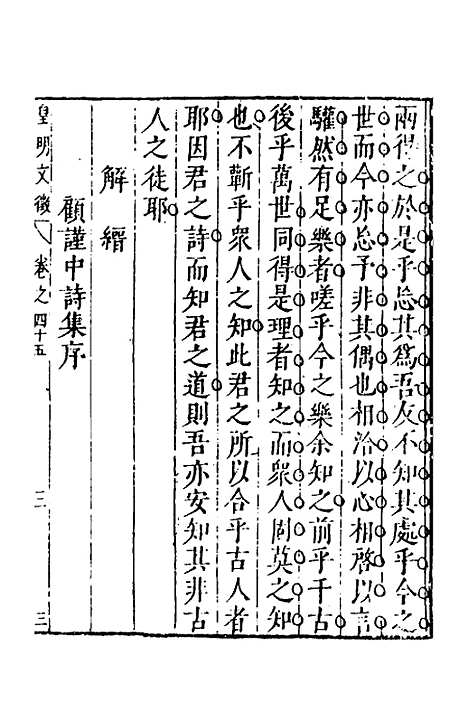 兩得之於是乎忘其爲吾友不知其處乎今之
世而今亦忘予非其偶也相洽以心相啓以言
驩然有足樂者嗟乎今之樂余知之前乎千古
後乎萬世同得是理者知之而衆人固莫之知
也不蘄乎衆人之知此君之所以合乎古人者
耶因君之詩而知君之道則吾亦安知其非古
人之徒耶
解縉
顧謹中詩集序
皇明文徵 卷之四十五 三 三